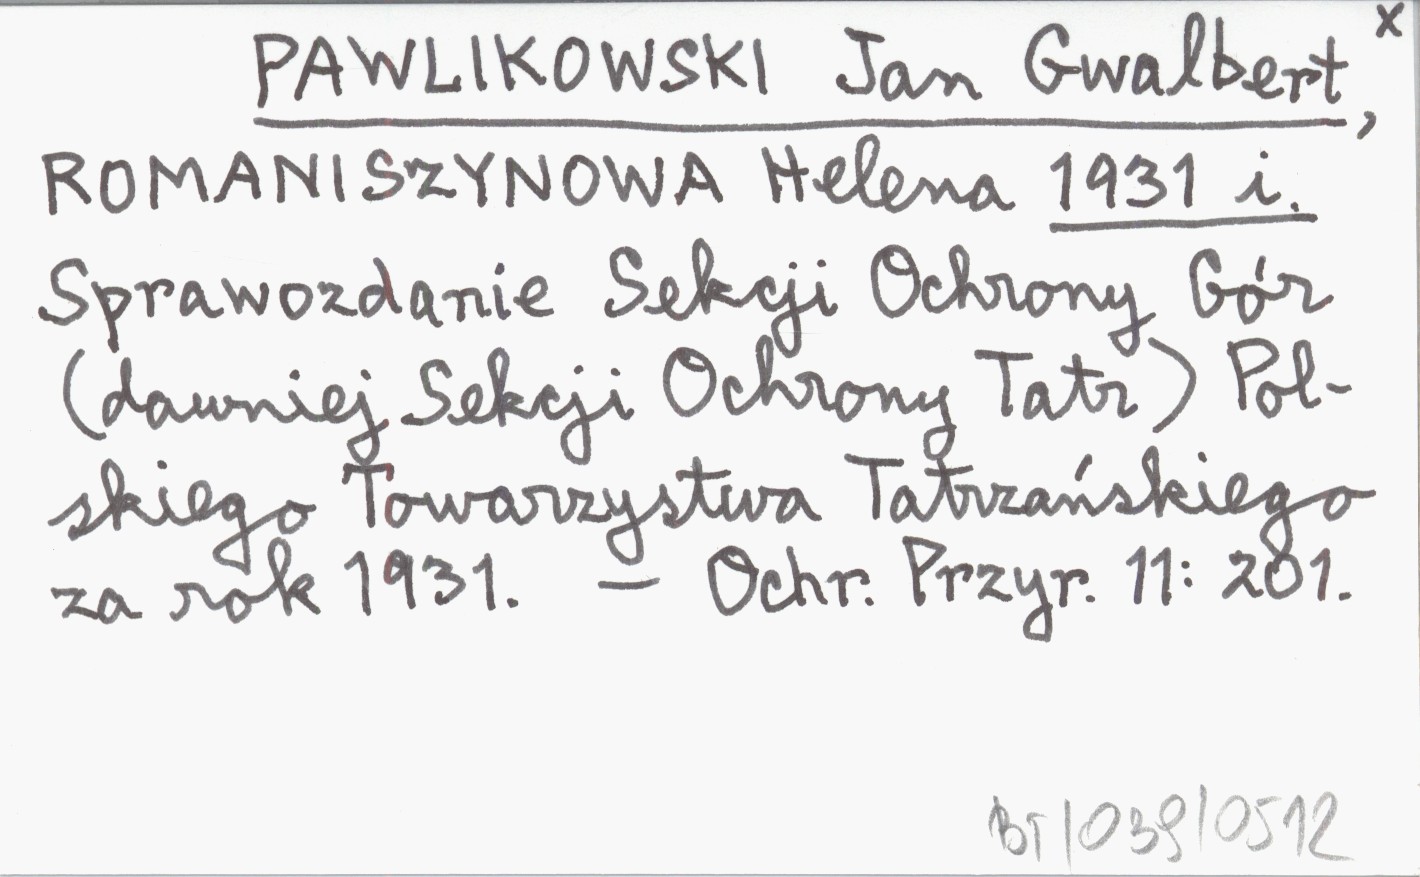 x
PAWLIKOWSKI Jan Gwalbert,
ROMANISZYNOWA Helena 1931 i.
Sprawozdanie Sekcji Ochrony Gór
(dawniej Sekcji Ochrony Tatr) Pol-
skiego Towarzystwa Tatrzańskiego
za rok 1931. — Ochr. Przyr. 11: 201.
BT/039/0512